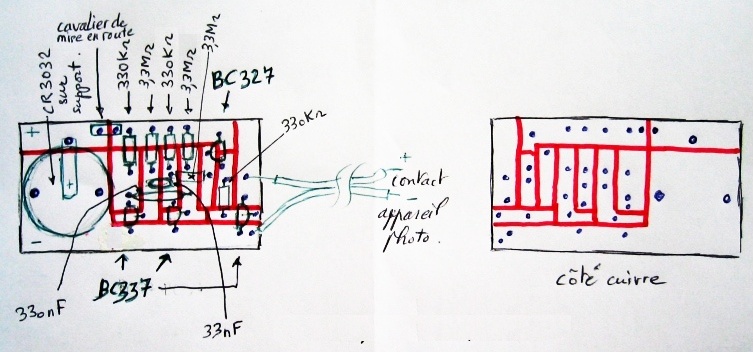 cavalier de
mise en route
CR3032
sur
support.
330KΩ
3,3MΩ
330KΩ
3,3MΩ
3,3MΩ
BC327
330KΩ
+
+
-
+
contact
-
appareil
photo.
BC337
330nF
33nF
côté cuivre